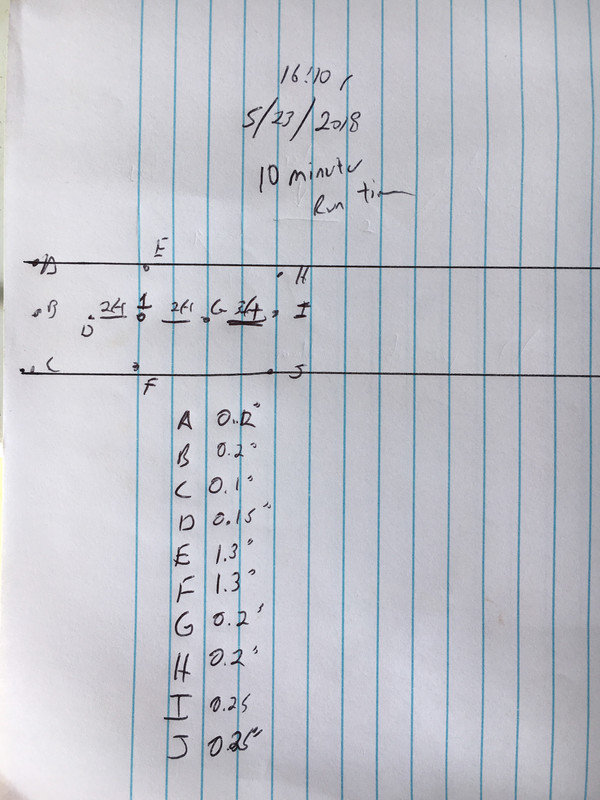 16:10
5/23/2018
10 minute
Run
E
A
H
B 2ft 1 2ft G 2ft I
D
C J
F
A
B 0.2"
C 0.1"
D 0.15"
E 1.3"
F 1.3"
G 0.2"
H 0.2"
I 0.25
J 0.25"